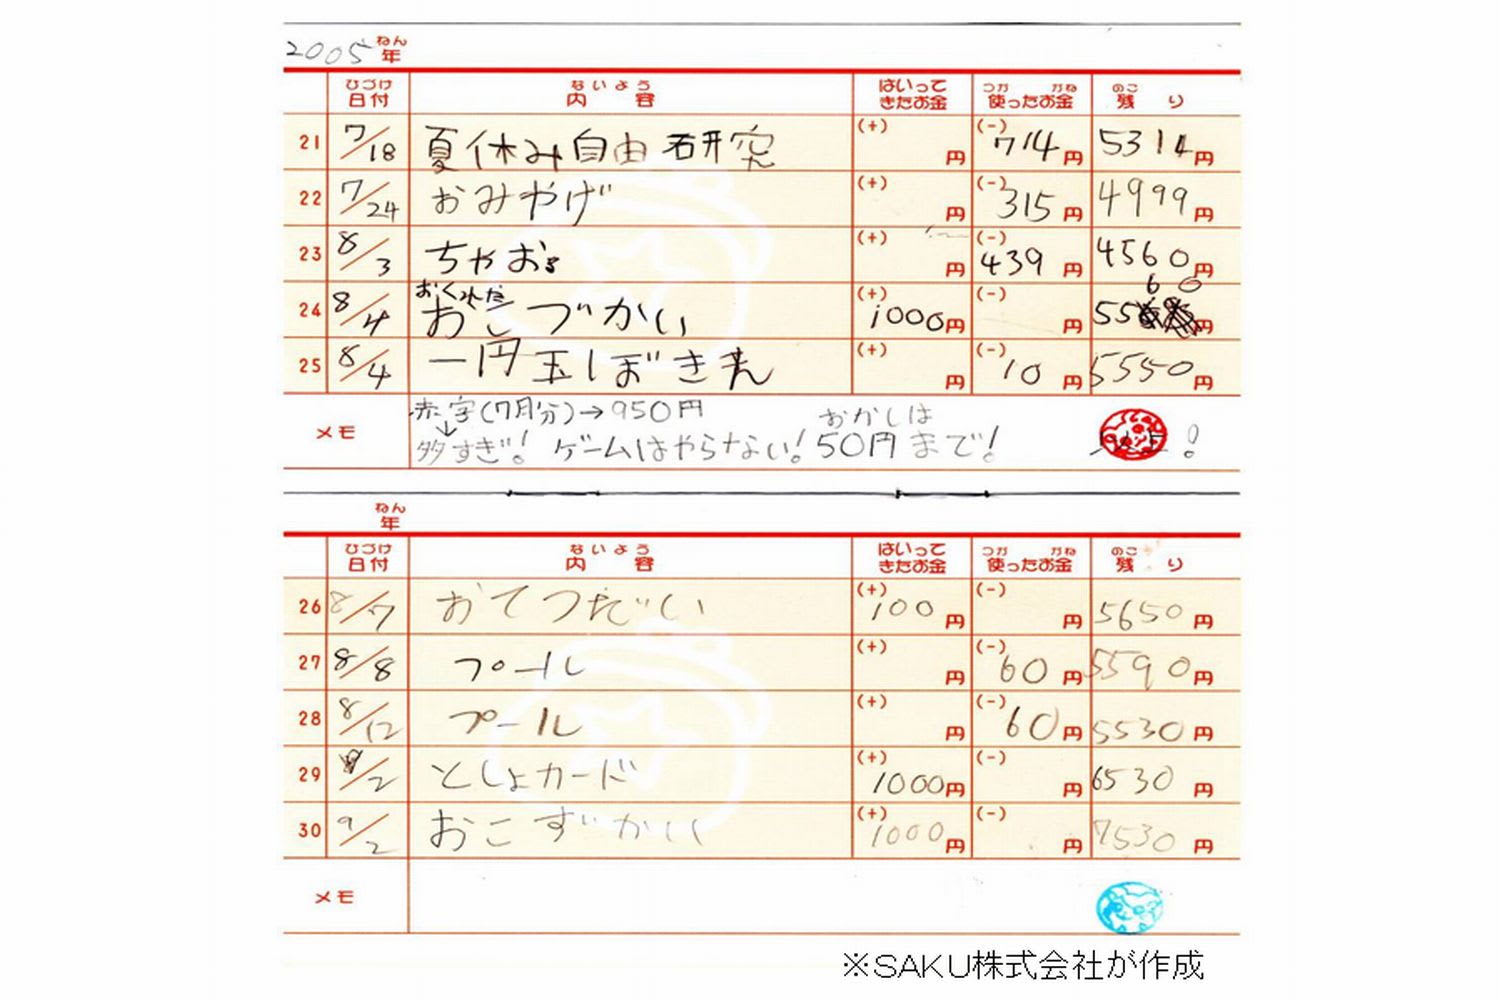 2005 年 ねん
ひづけ 日付 ないよう 内容 はいって きたお金 つか かね 使ったお金 のこ 残り
21 7/18 夏休み自由研究 (+) 円 (-) 714円 5314円
22 7/24 おみやげ (+) 円 (-) 315円 4999円
23 8/3 ちゃお (+) 円 (-) 439円 4560円
24 8/4 おくれた おこづかい (+) 1000円 (-) 円 5560円
25 8/4 一円玉ぼきん (+) 円 (-) 10円 5550円
メモ 赤字(7月分)→950円 おかしは
↓
多すぎ! ゲームはやらない! 50円まで! !
ねん 年
ひづけ 日付 ないよう 内容 はいって きたお金 つか かね 使ったお金 のこ 残り
26 8/7 おてつだい (+) 100円 (-) 円 5650円
27 8/8 プール (+) 円 (-) 60円 5590円
28 8/12 プール (+) 円 (-) 60円 5530円
29 /2 としょカード (+) 1000円 (-) 円 6530円
30 9/2 おこずかい (+) 1000円 (-) 円 7530円
メモ
※SAKU株式会社が作成